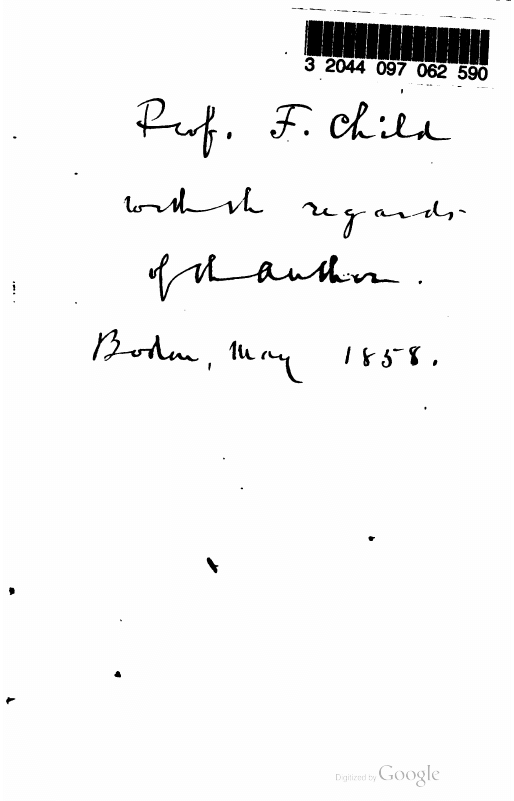 3 2044 097 062 590
Prof. F. Child
with th regards
of th author.
Boston, May 1858.
Digitized by Google